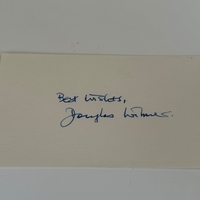 Best wishes,
Douglas Wilmer.